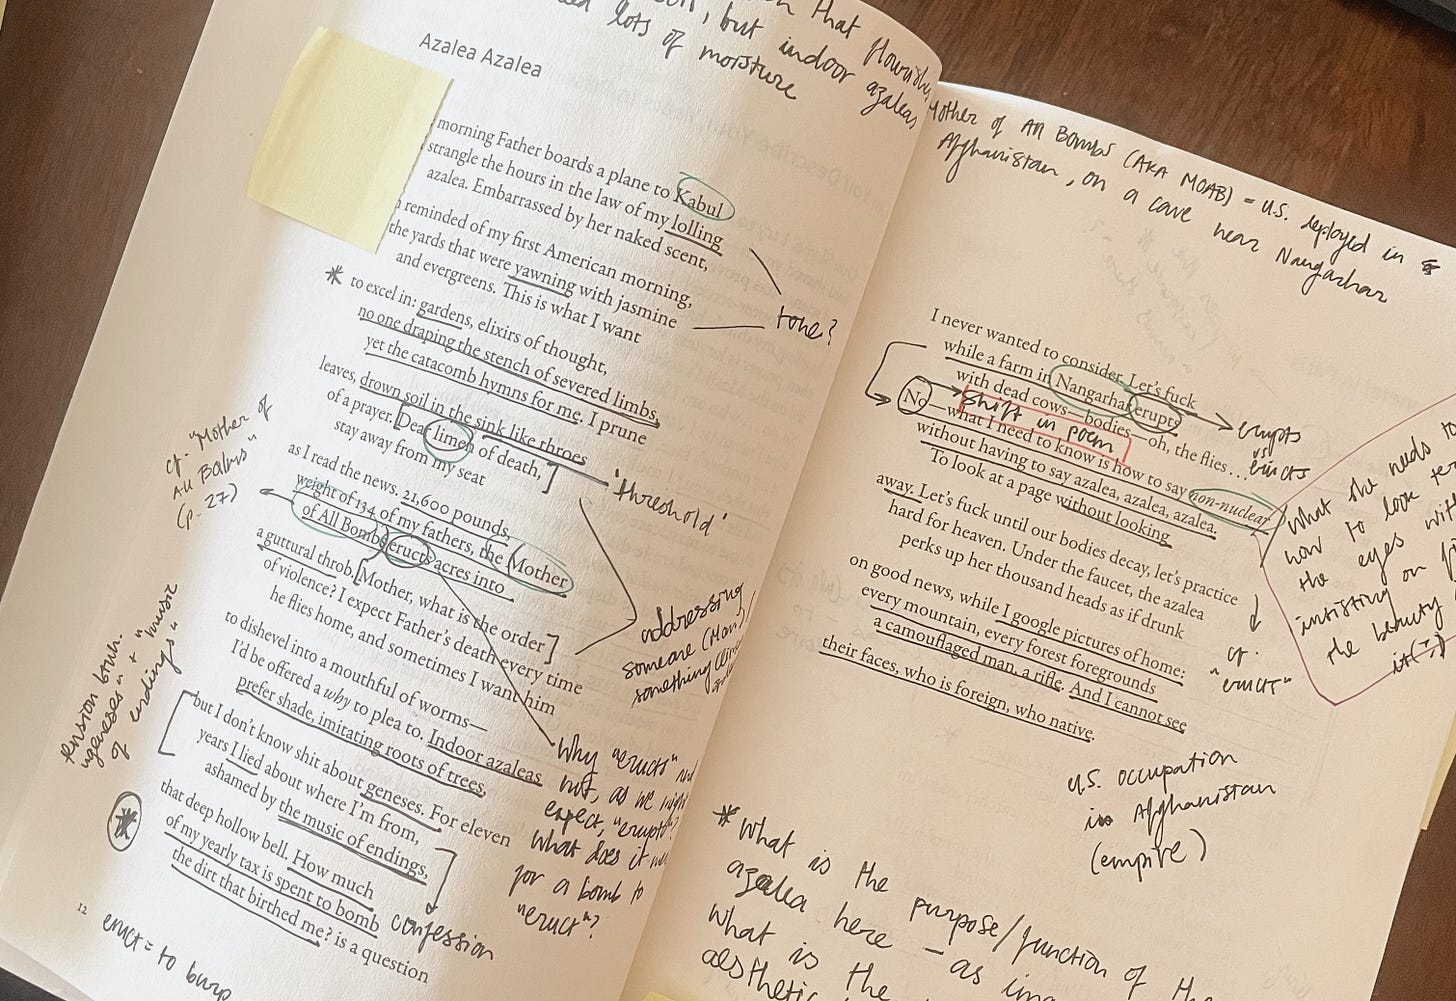 that flourish
, but indoor azaleas
lots of moisture
Azalea Azalea
morning Father boards a plane to Kabul
strangle the hours in the law of my lolling
azalea. Embarrassed by her naked scent,
reminded of my first American morning,
the yards that were yawning with jasmine
and evergreens. This is what I want
* to excel in: gardens, elixirs of thought,
no one draping the stench of severed limbs,
yet the catacomb hymns for me. I prune
leaves, drown soil in the sink like throes
of a prayer. Dear limen of death,
stay away from my seat
as I read the news. 21,600 pounds,
weight of 134 of my fathers, the Mother
of All Bombs eructs acres into
a guttural throb. Mother, what is the order
of violence? I expect Father's death every time
he flies home, and sometimes I want him
to dishevel into a mouthful of worms—
I'd be offered a why to plea to. Indoor azaleas
prefer shade, imitating roots of trees,
but I don't know shit about geneses. For eleven
years I lied about where I'm from,
ashamed by the music of endings,
that deep hollow bell. How much
of my yearly tax is spent to bomb
the dirt that birthed me? is a question
12
tone?
'threshold'
cf. "Mother of
All Balms"
(p. 27)
addressing
someone (Mom)/
something
tension btwn.
"geneses" + "music
of endings"
*
Why "eruct" and
not, as we might
expect, "erupt"?
What does it
for a bomb to
"eruct"?
confession
eruct = to burp
Mother of All Bombs (AKA MOAB) = U.S. deployed in
Afghanistan, on a cave near Nangarhar
I never wanted to consider. Let's fuck
while a farm in Nangarhar erupts
with dead cows—bodies—oh, the flies . . .
No—what I need to know is how to say non-nuclear
without having to say azalea, azalea, azalea.
To look at a page without looking
away. Let's fuck until our bodies decay, let's practice
hard for heaven. Under the faucet, the azalea
perks up her thousand heads as if drunk
on good news, while I google pictures of home:
every mountain, every forest foregrounds
a camouflaged man, a rifle. And I cannot see
their faces, who is foreign, who native.
shift in poem
erupts
eructs
cf.
"eruct"
What she needs to
how to look
the eyes
insisting on
the beauty
U.S. occupation
in Afghanistan
(empire)
* What is the purpose/function of the
azalea here — as
What is the
aesthetic